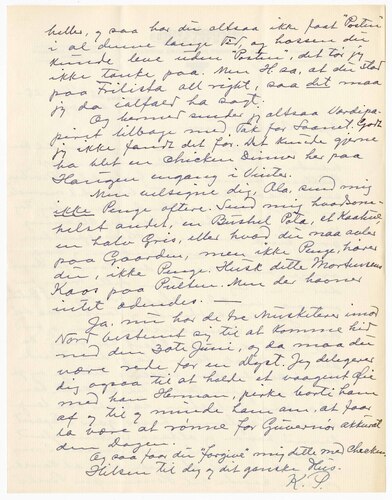 heller, og saa har du altsaa ikke faat "Posten"
i al denne lange Tid, og hossen du
kunde leve uden "Posten", det tør jeg
ikke tænke paa. Men H sa, at du stod
paa Frilista all right, saa det maa
jeg da ialfald ha sagt.
Og hermed sender jeg altsaa Værdipa-
piret tilbage med Tak for Laanet. Godt
jeg ikke fandt det før. Det kunde gjerne
ha blet en Chicken Dinner her paa
Haugen engang i Vinter.
Men velsigne dig, Ola, send mig
ikke Penge oftere. Send mig hvadsom-
helst andet, en Bushel Pota, et Kaalhue,
en halv Gris, eller hvad du maa avle
paa Gaarden, men ikke Penge, hører
du, ikke Penge. Husk dette Mortensens
Kaos paa Présten. Men der
intet —
Ja, nu har de tre Musketerer imod
Nord bestemt sig til at komme hid
med den 20te Juni, og da maa du
være rede for en dyst. Jeg delegerer
dig ogsaa til at holde et vaagent Øie
med han Herman, perke borti ham
af og til og minde ham om at faar
ha være at rømme for Guvernør akkurat
den Dagen.
Og saa faar du "forgive" mig dette med Checken.
Hilsen til dig og dit ganske Hus.
K. P.